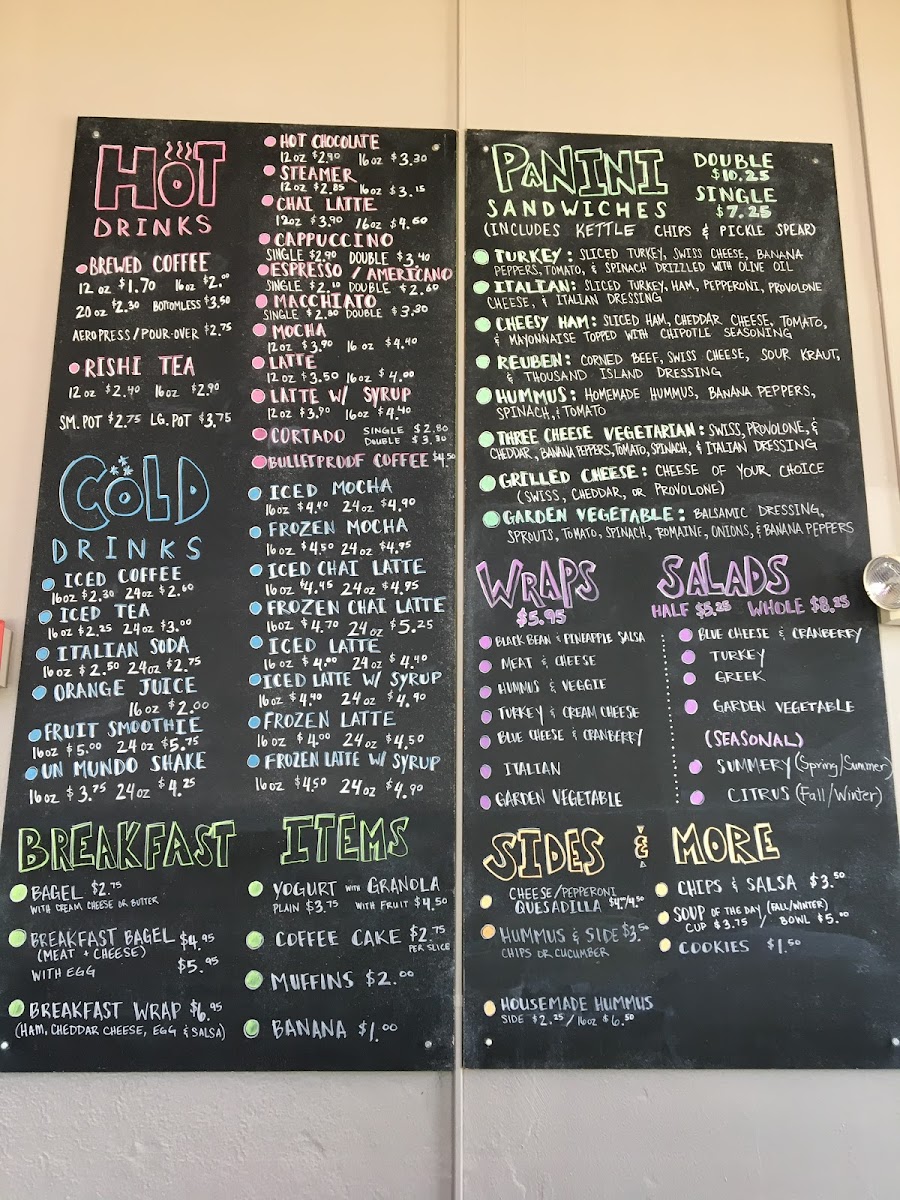 HOT
DRINKS
BREWED COFFEE
12 oz $1.70 16 oz $2.00
20 oz $2.30 BOTTOMLESS $3.50
AEROPRESS / POUR-OVER $2.75
RISHI TEA
12 oz $2.40 16 oz $2.90
SM. POT $2.75 LG. POT $3.75
HOT CHOCOLATE
12 oz $2.90 16 oz $3.30
STEAMER
12 oz $2.85 16 oz $3.15
CHAI LATTE
12 oz $3.90 16 oz $4.60
CAPPUCCINO
SINGLE $2.90 DOUBLE $3.40
ESPRESSO / AMERICANO
SINGLE $2.10 DOUBLE $2.60
MACCHIATO
SINGLE $2.80 DOUBLE $3.30
MOCHA
12 oz $3.90 16 oz $4.40
LATTE
12 oz $3.50 16 oz $4.00
LATTE W/ SYRUP
12 oz $3.90 16 oz $4.40
CORTADO SINGLE $2.80
DOUBLE $3.30
BULLETPROOF COFFEE $4.50
COLD
DRINKS
ICED COFFEE
16 oz $2.30 24 oz $2.60
ICED TEA
16 oz $2.25 24 oz $3.00
ITALIAN SODA
16 oz $2.50 24 oz $2.75
ORANGE JUICE
16 oz $2.00
FRUIT SMOOTHIE
16 oz $5.00 24 oz $5.75
UN MUNDO SHAKE
16 oz $3.75 24 oz $4.25
ICED MOCHA
16 oz $4.40 24 oz $4.90
FROZEN MOCHA
16 oz $4.50 24 oz $4.95
ICED CHAI LATTE
16 oz $4.45 24 oz $4.95
FROZEN CHAI LATTE
16 oz $4.70 24 oz $5.25
ICED LATTE
16 oz $4.00 24 oz $4.40
ICED LATTE W/ SYRUP
16 oz $4.40 24 oz $4.90
FROZEN LATTE
16 oz $4.00 24 oz $4.50
FROZEN LATTE W/ SYRUP
16 oz $4.50 24 oz $4.90
BREAKFAST ITEMS
BAGEL $2.75
WITH CREAM CHEESE OR BUTTER
BREAKFAST BAGEL $4.95
(MEAT + CHEESE)
WITH EGG $5.95
BREAKFAST WRAP $6.95
(HAM, CHEDDAR CHEESE, EGG & SALSA)
YOGURT WITH GRANOLA
PLAIN $3.75 WITH FRUIT $4.50
COFFEE CAKE $2.75
PER SLICE
MUFFINS $2.00
BANANA $1.00
PANINI
SANDWICHES
DOUBLE
$10.25
SINGLE
$7.25
(INCLUDES KETTLE CHIPS & PICKLE SPEAR)
TURKEY: SLICED TURKEY, SWISS CHEESE, BANANA
PEPPERS, TOMATO, & SPINACH DRIZZLED WITH OLIVE OIL
ITALIAN: SLICED TURKEY, HAM, PEPPERONI, PROVOLONE
CHEESE, & ITALIAN DRESSING
CHEESY HAM: SLICED HAM, CHEDDAR CHEESE, TOMATO,
& MAYONNAISE TOPPED WITH CHIPOTLE SEASONING
REUBEN: CORNED BEEF, SWISS CHEESE, SOUR KRAUT,
& THOUSAND ISLAND DRESSING
HUMMUS: HOMEMADE HUMMUS, BANANA PEPPERS,
SPINACH, & TOMATO
THREE CHEESE VEGETARIAN: SWISS, PROVOLONE, &
CHEDDAR, BANANA PEPPERS, TOMATO, SPINACH, & ITALIAN DRESSING
GRILLED CHEESE: CHEESE OF YOUR CHOICE
(SWISS, CHEDDAR, OR PROVOLONE)
GARDEN VEGETABLE: BALSAMIC DRESSING,
SPROUTS, TOMATO, SPINACH, ROMAINE, ONIONS, & BANANA PEPPERS
WRAPS
$5.95
BLACK BEAN & PINEAPPLE SALSA
MEAT & CHEESE
HUMMUS & VEGGIE
TURKEY & CREAM CHEESE
BLUE CHEESE & CRANBERRY
ITALIAN
GARDEN VEGETABLE
SALADS
HALF $5.25 WHOLE $8.25
BLUE CHEESE & CRANBERRY
TURKEY
GREEK
GARDEN VEGETABLE
(SEASONAL)
SUMMERY (Spring/Summer)
CITRUS (Fall/Winter)
SIDES & MORE
CHEESE/PEPPERONI
QUESADILLA $4.00/4.50
HUMMUS & SIDE $3.50
CHIPS OR CUCUMBER
HOUSEMADE HUMMUS
SIDE $2.25 / 16oz $6.50
CHIPS & SALSA $3.50
SOUP OF THE DAY (FALL/WINTER)
CUP $3.75 / BOWL $5.00
COOKIES $1.50